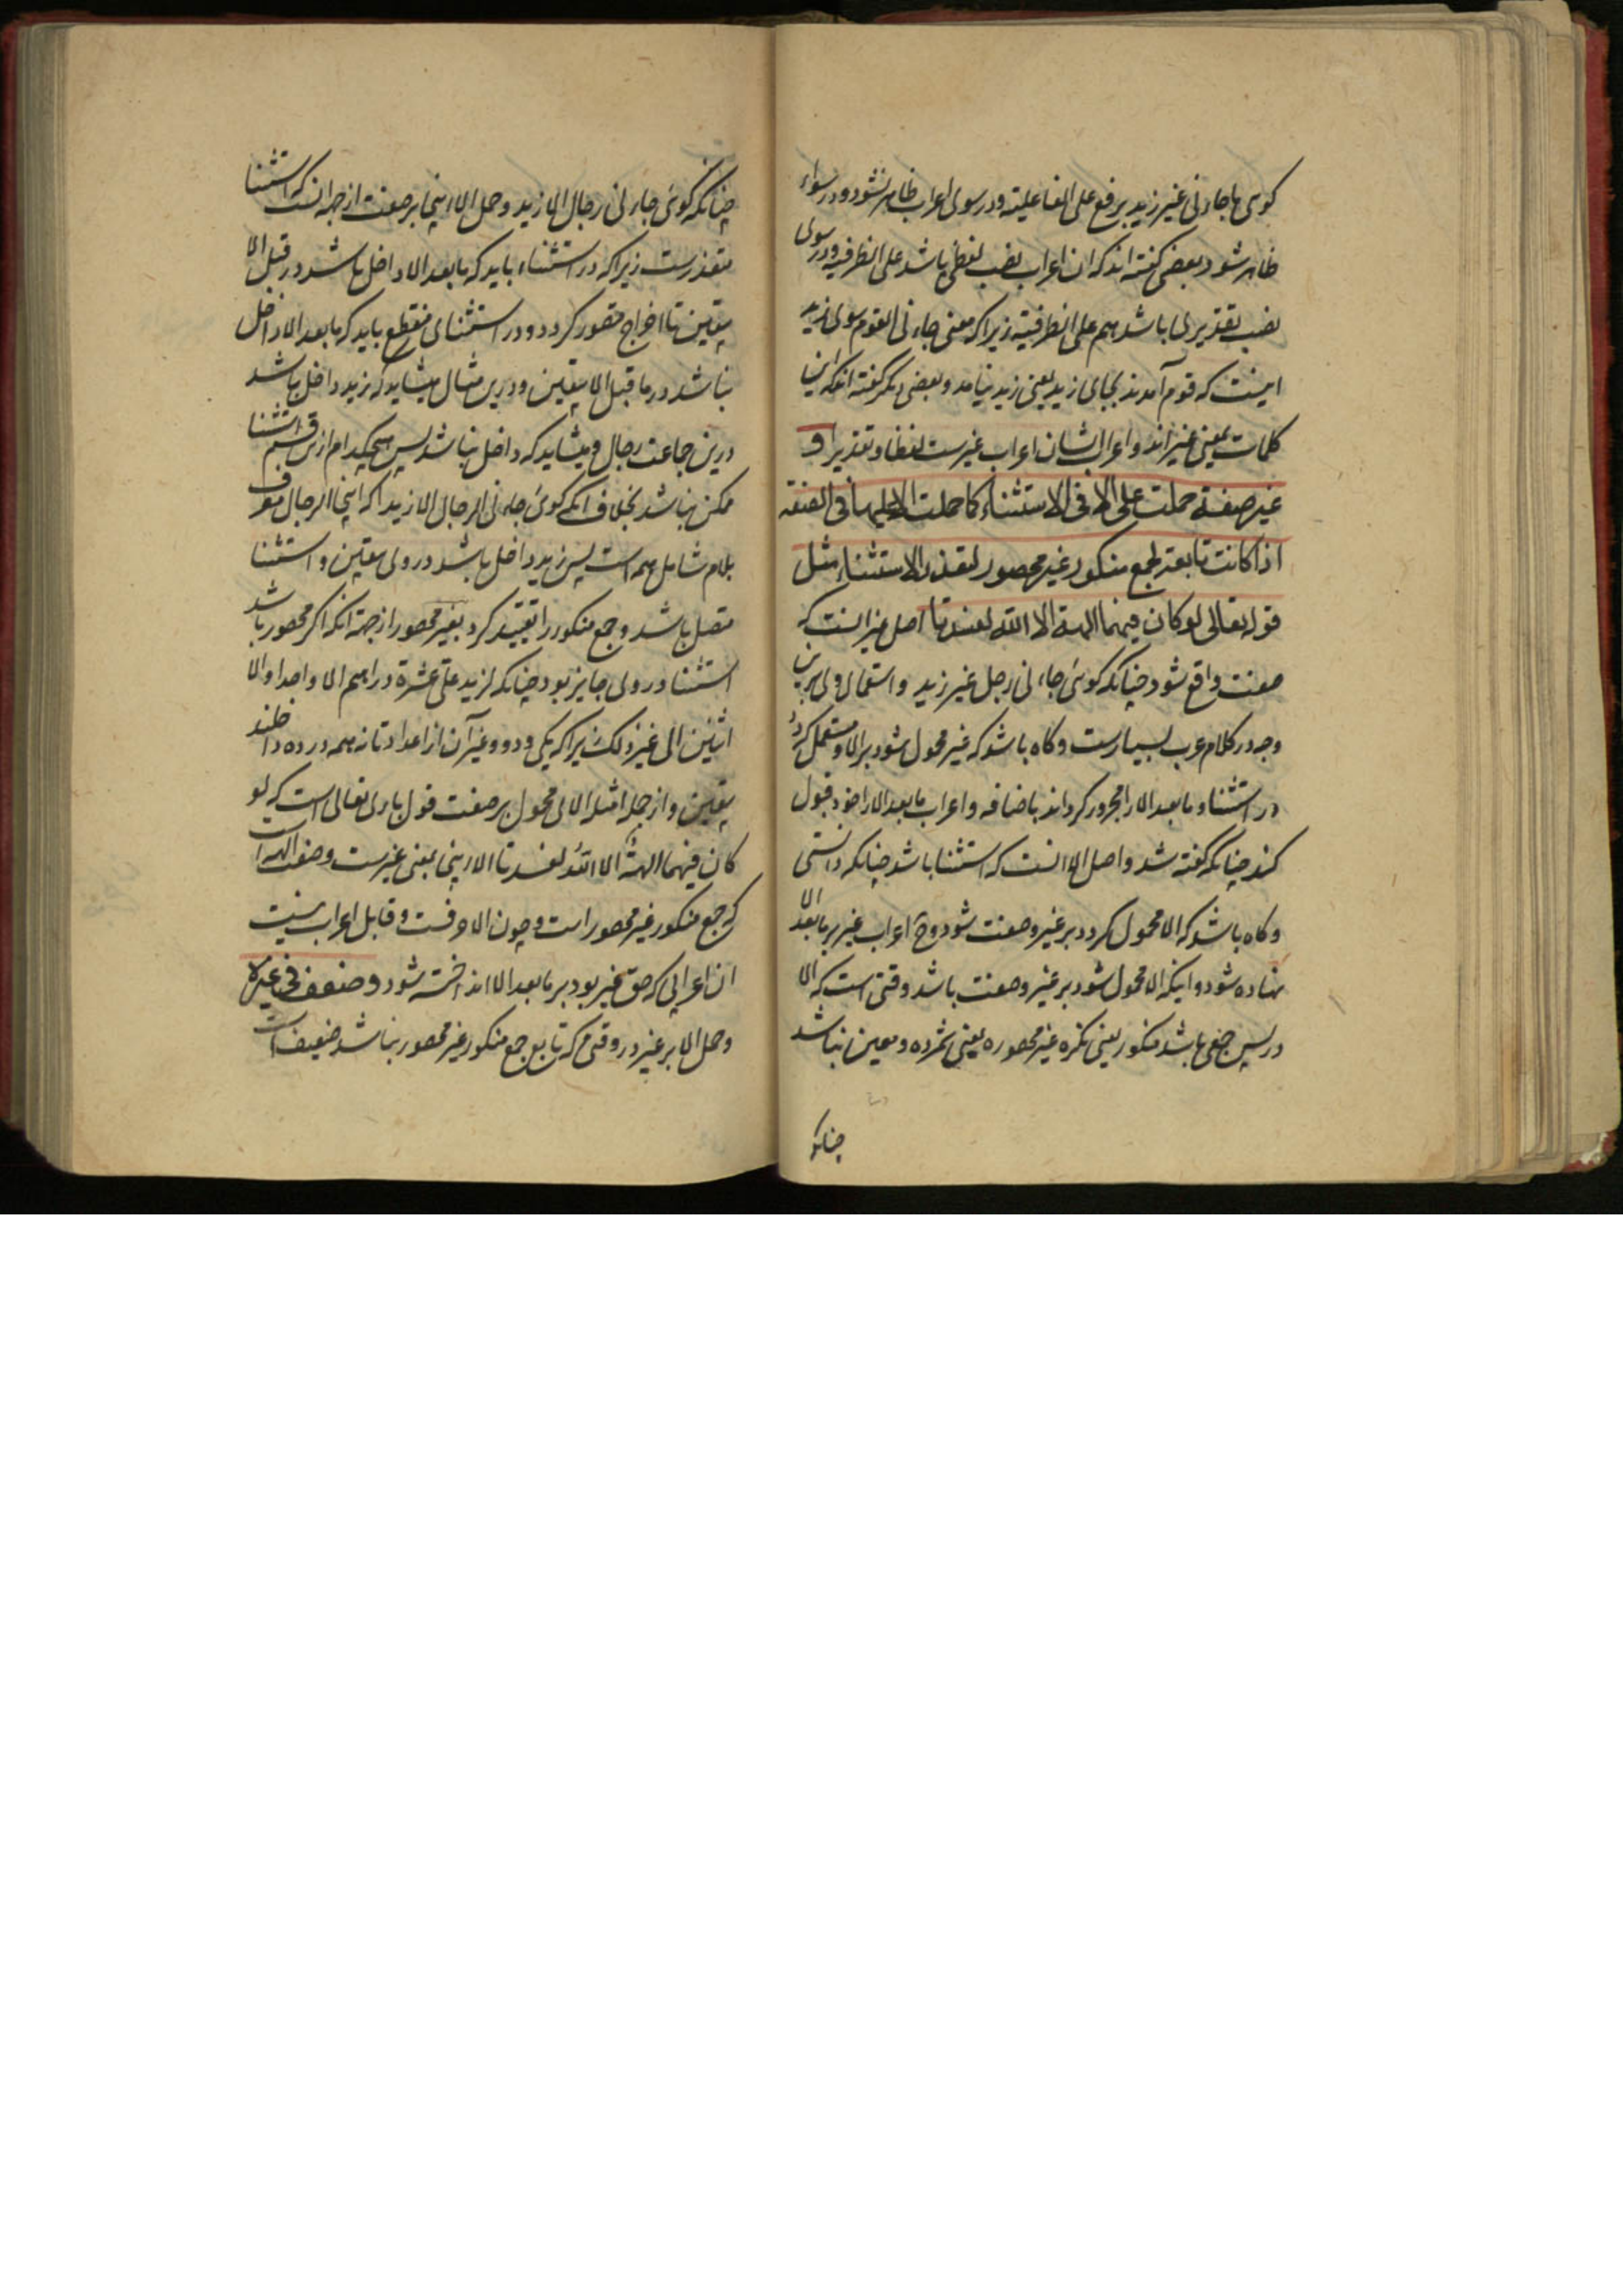 کوئی ما جاءنی غیر زید برفع علی الفاعلیة ودر سوی اعراب ظاهر نشود ودر سواء
ظاهر شود و بعضی گفته اند که ان اعراب نصب لفظی باشد علی الظرفیه و در سوی
نصب تقدیری باشد هم علی الظرفیة زیرا که معنی جاءنی القوم سوی زید
اینست که قوم آمدند بجای زید یعنی زید نیامد و بعضی دیگر گفته اند که این
کلمات بمعنی غیر اند و اعراب ایشان اعراب غیرست لفظا و تقدیرا و
غیر صفة حملت علی الا فی الاستثناء کما حملت الا علیها فی الصفة
اذا کانت تابعة لجمع منکور غیر محصور لتعذر الاستثناء مثل
قوله تعالی لو کان فیهما الهة الا الله لفسدتا اصل غیر انست که
صفت واقع شود چنانکه کوئی جاءنی رجل غیر زید و استعمال وی برین
وجه در کلام عرب بسیارست و کاه باشد که غیر محمول شود بر الا و مستعمل کردد
در استثنا و ما بعد الا را مجرور کرداند باضافه و اعراب ما بعد الا را خود قبول
کند چنانکه گفته شد و اصل الا انست که استثنا باشد چنانکه دانستی
و کاه باشد که الا محمول کردد بر غیر و صفت شود و ح اعراب غیر بر ما بعد الا
نهاده شود و اینکه الا محمول شود بر غیر و صفت باشد وقتی است که الا
در پس جمعی باشد منکور یعنی نکره غیر محصوره یعنی شمرده و معین نباشد
چنانکه
چنانکه کوئی جاءنی رجال الا زید و حمل الا اینجا بر صفت از جهة انست که استثنا
متعذرست زیرا که در استثناء باید که ما بعد الا داخل باشد در قبل الا
بیقین تا اخراج متصور کردد و در استثنای منقطع باید که ما بعد الا داخل
نباشد در ما قبل الا بیقین و درین مثال میشاید که زید داخل باشد
درین جماعت رجال و میشاید که داخل نباشد پس هیچکدام ازین قسم استثنا
ممکن نباشد بخلاف انکه کوئی جاءنی الرجال الا زیدا که اینجا الرجال معرف
بلام شامل همه است پس زید داخل باشد در وی بیقین و استثنا
متصل باشد و جمع منکور را تقیید کرد بغیر محصور از جهة انکه اگر محصور باشد
استثنا در وی جایز بود چنانکه لزید علی عشرة دراهم الا واحدا و الا
اثنین الی غیر ذلک زیرا که یکی و دو و غیر آن از اعداد تا نه همه در ده داخلند
بیقین و از جمله امثله الای محمول بر صفت قول باری تعالی است که لو
کان فیهما الهة الا الله لفسدتا الا اینجا بمعنی غیرست و صفت الهه است
که جمع منکور غیر محصور است و چون الا حرفست و قابل اعراب نیست
ان اعرابی که حق غیر بود بر ما بعد الا انداخته شود و ضعف فی غیره
و حمل الا بر غیر در وقتی که تابع جمع منکور غیر محصور نباشد ضعیف است